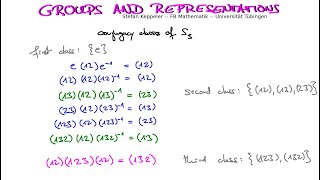 GROUPS AND REPRESENTATIONS
Stefan Keppeler -- FB Mathematik -- Universität Tübingen
conjugacy classes of S₃
first class: {e}
e (12) e⁻¹ = (12)
(12) (12) (12)⁻¹ = (12)
(13) (12) (13)⁻¹ = (23)
(23) (12) (23)⁻¹ = (13)
(123) (12) (123)⁻¹ = (23)
(132) (12) (132)⁻¹ = (13)
second class: {(12), (13), (23)}
(12) (123) (12) = (132)
third class: {(123), (132)}